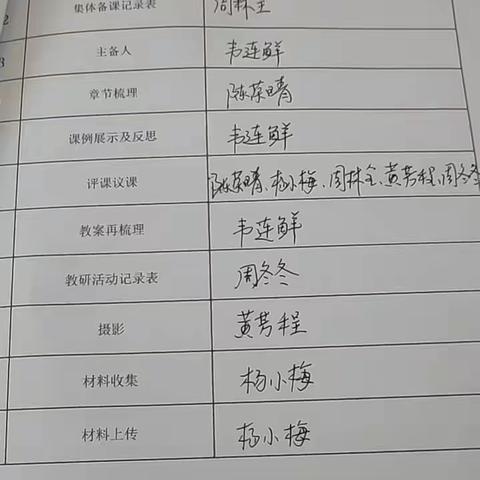 2 集体备课记录表 周林全
3 主备人 韦连鲜
章节梳理 陈荣晴
课例展示及反思 韦连鲜
评课议课 陈荣晴、杨小梅、周林全、黄芳程、周冬冬
教案再梳理 韦连鲜
教研活动记录表 周冬冬
摄影 黄芳程
材料收集 杨小梅
材料上传 杨小梅